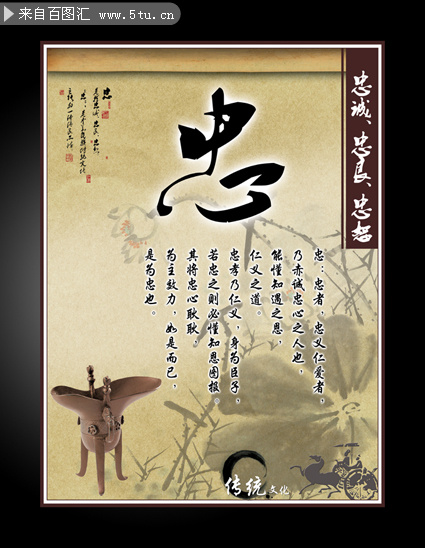 来自百图汇 www.5tu.cn
忠诚、忠良、忠恕
忠
忠：忠者，忠义仁爱者，
乃赤诚忠心之人也，
能懂知遇之恩，
仁义之道。
忠孝乃仁义，身为臣子，
若忠之则必懂知恩图报。
其将忠心耿耿，
为主效力，如是而已，
是为忠也。
传统文化